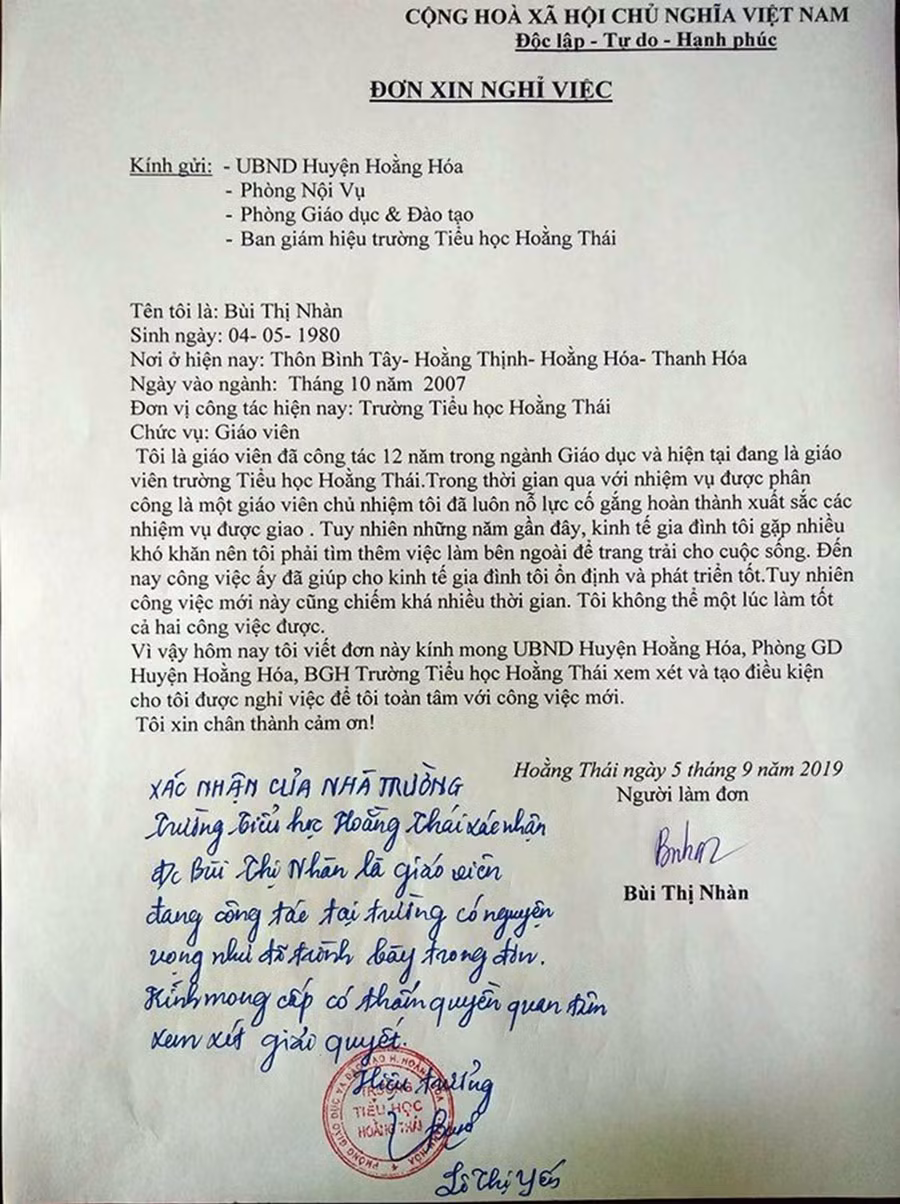 CỘNG HOÀ XÃ HỘI CHỦ NGHĨA VIỆT NAM
Độc lập - Tự do - Hạnh phúc
ĐƠN XIN NGHỈ VIỆC
Kính gửi: - UBND Huyện Hoằng Hóa
- Phòng Nội Vụ
- Phòng Giáo dục & Đào tạo
- Ban giám hiệu trường Tiểu học Hoằng Thái
Tên tôi là: Bùi Thị Nhàn
Sinh ngày: 04- 05- 1980
Nơi ở hiện nay: Thôn Bình Tây- Hoằng Thịnh- Hoằng Hóa- Thanh Hóa
Ngày vào ngành: Tháng 10 năm 2007
Đơn vị công tác hiện nay: Trường Tiểu học Hoằng Thái
Chức vụ: Giáo viên
Tôi là giáo viên đã công tác 12 năm trong ngành Giáo dục và hiện tại đang là giáo
viên trường Tiểu học Hoằng Thái.Trong thời gian qua với nhiệm vụ được phân
công là một giáo viên chủ nhiệm tôi đã luôn nỗ lực cố gắng hoàn thành xuất sắc các
nhiệm vụ được giao . Tuy nhiên những năm gần đây, kinh tế gia đình tôi gặp nhiều
khó khăn nên tôi phải tìm thêm việc làm bên ngoài để trang trải cho cuộc sống. Đến
nay công việc ấy đã giúp cho kinh tế gia đình tôi ổn định và phát triển tốt.Tuy nhiên
công việc mới này cũng chiếm khá nhiều thời gian. Tôi không thể một lúc làm tốt
cả hai công việc được.
Vì vậy hôm nay tôi viết đơn này kính mong UBND Huyện Hoằng Hóa, Phòng GD
Huyện Hoằng Hóa, BGH Trường Tiểu học Hoằng Thái xem xét và tạo điều kiện
cho tôi được nghỉ việc để tôi toàn tâm với công việc mới.
Tôi xin chân thành cảm ơn!
Hoằng Thái ngày 5 tháng 9 năm 2019
Người làm đơn
Bùi Thị Nhàn
XÁC NHẬN CỦA NHÀ TRƯỜNG
Trường Tiểu học Hoằng Thái xác nhận
đ/c Bùi Thị Nhàn là giáo viên
đang công tác tại trường có nguyện
vọng như đã trình bày trong đơn.
Kính mong cấp có thẩm quyền quan tâm
xem xét giải quyết.
Hiệu trưởng
TRƯỜNG
TIỂU HỌC
HOẰNG THÁI
Lê Thị Yến